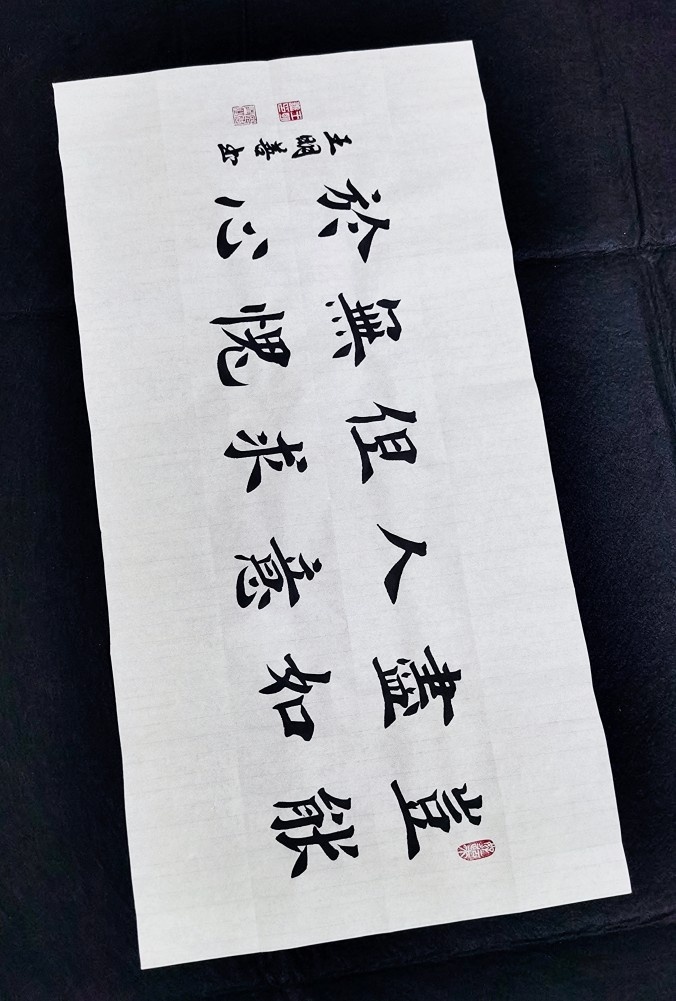 豈能
盡如
人意
但求
無愧
於心
王明善书